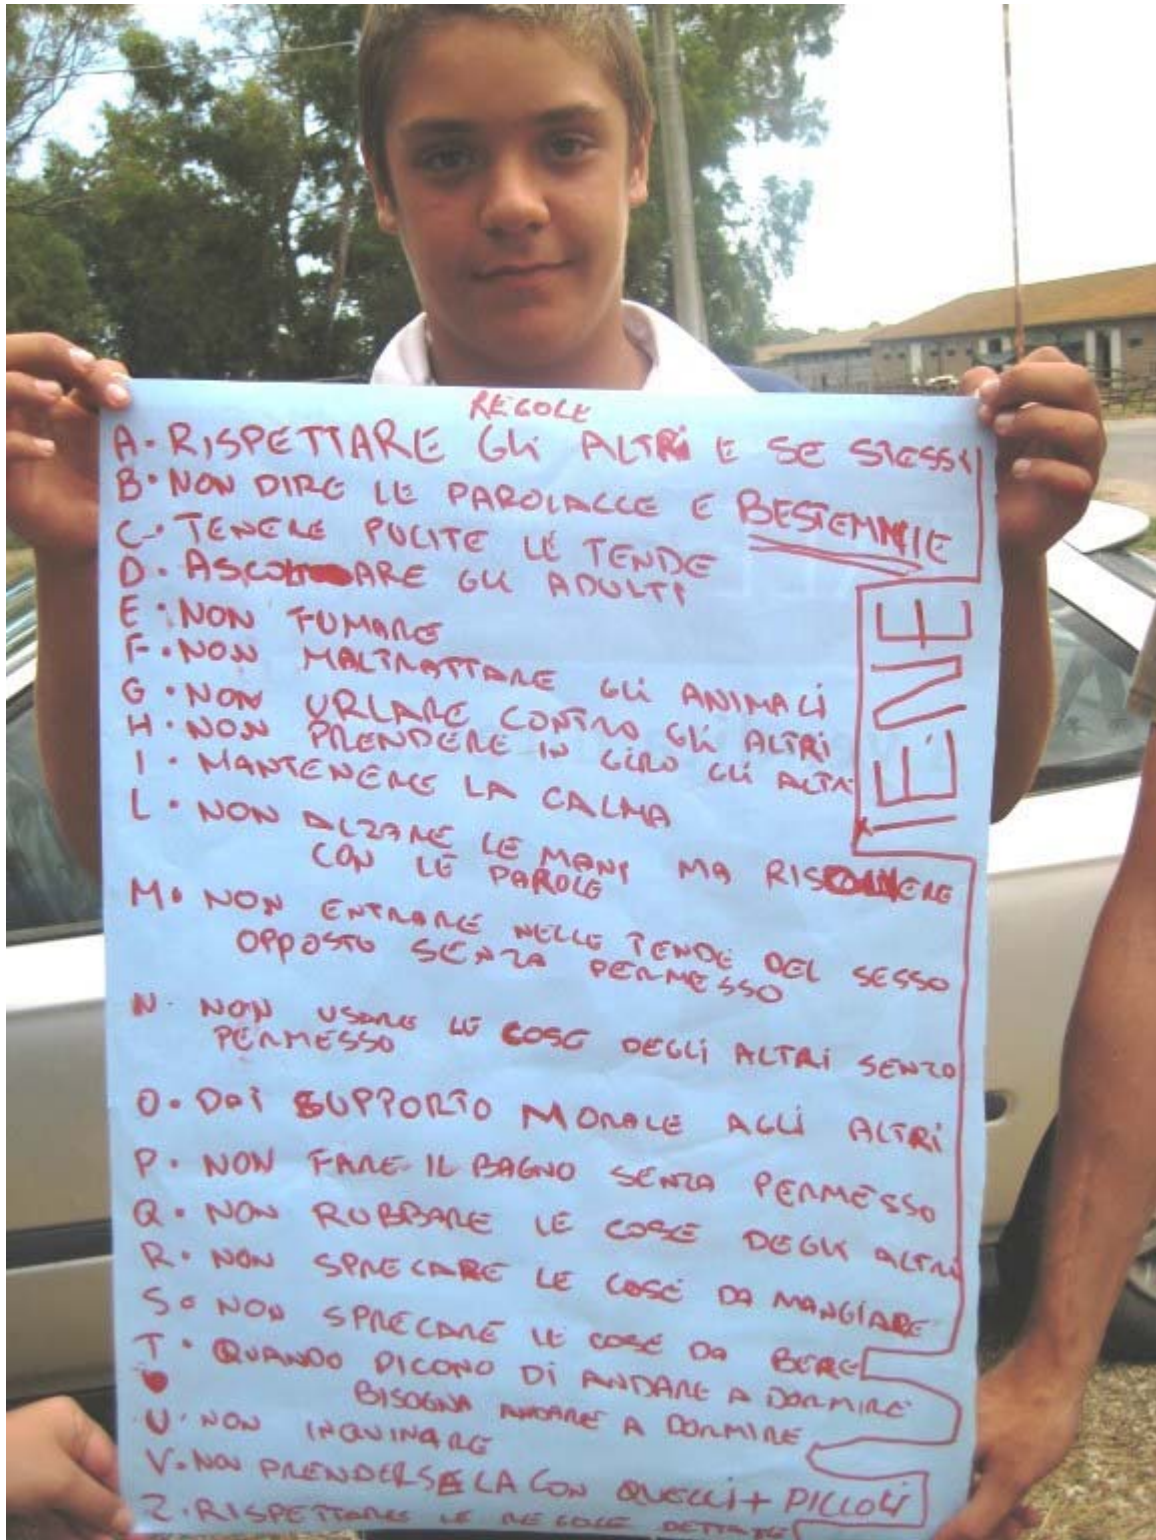 REGOLE
A. RISPETTARE GLI ALTRI E SE STESSI
B. NON DIRE LE PAROLACCE E BESTEMMIE
C. TENERE PULITE LE TENDE
D. ASCOLTARE GLI ADULTI
E. NON FUMARE
F. NON MALTRATTARE GLI ANIMALI
G. NON URLARE CONTRO GLI ALTRI
H. NON PRENDERE IN GIRO GLI ALTRI
I. MANTENERE LA CALMA
L. NON ALZARE LE MANI MA RISOLVERE
CON LE PAROLE
M. NON ENTRARE NELLE TENDE DEL SESSO
OPPOSTO SENZA PERMESSO
N. NON USARE LE COSE DEGLI ALTRI SENZA
PERMESSO
O. DAI SUPPORTO MORALE AGLI ALTRI
P. NON FARE IL BAGNO SENZA PERMESSO
Q. NON RUBBARE LE COSE DEGLI ALTRI
R. NON SPRECARE LE COSE DA MANGIARE
S. NON SPRECARE LE COSE DA BERE
T. QUANDO DICONO DI ANDARE A DORMIRE
BISOGNA ANDARE A DORMIRE
U. NON INQUINARE
V. NON PRENDERSELA CON QUELLI + PICCOLI
Z. RISPETTARE LE REGOLE DETTATE
IENE